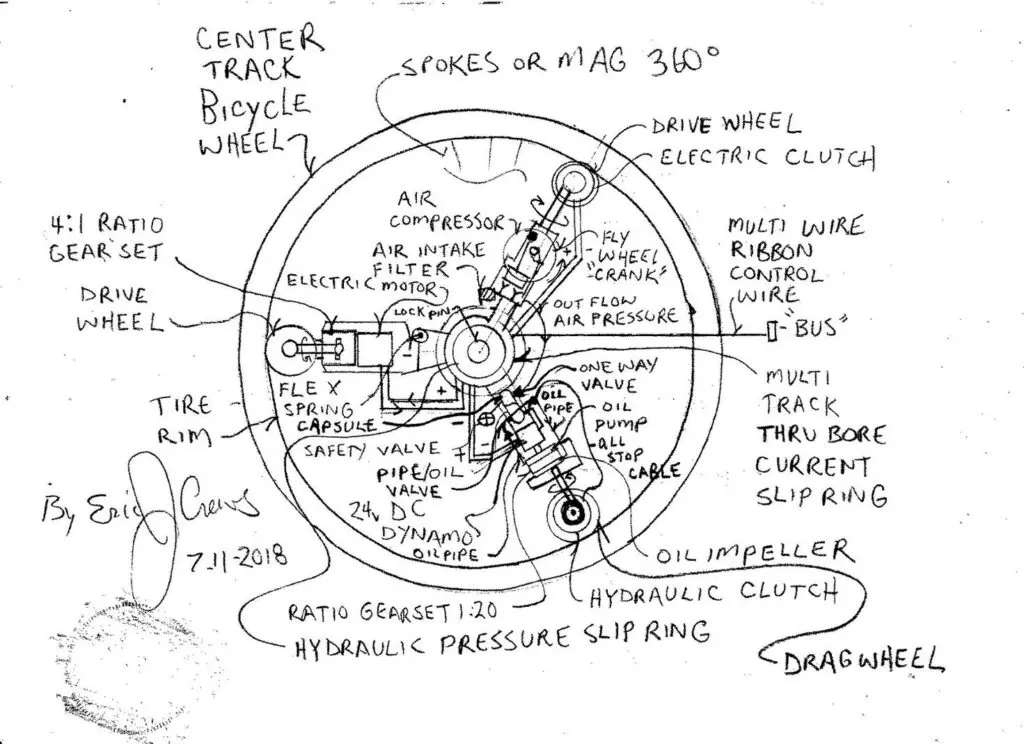 CENTER
TRACK
BICYCLE
WHEEL
SPOKES OR MAG 360°
DRIVE WHEEL
ELECTRIC CLUTCH
AIR
COMPRESSOR
FLY
WHEEL
"CRANK"
MULTI WIRE
RIBBON
CONTROL
WIRE
"BUS"
4:1 RATIO
GEAR SET
AIR INTAKE
FILTER
ELECTRIC MOTOR
LOCK PIN
OUT FLOW
AIR PRESSURE
DRIVE
WHEEL
FLEX
SPRING
CAPSULE
ONE WAY
VALVE
OIL
PIPE
OIL
PUMP
ALL
STOP
CABLE
MULTI
TRACK
THRU BORE
CURRENT
SLIP RING
TIRE
RIM
SAFETY VALVE
PIPE/OIL
VALVE
24V DC
DYNAMO
OIL PIPE
By Eric J Crews
7-11-2018
OIL IMPELLER
HYDRAULIC CLUTCH
RATIO GEARSET 1:20
HYDRAULIC PRESSURE SLIP RING
DRAGWHEEL